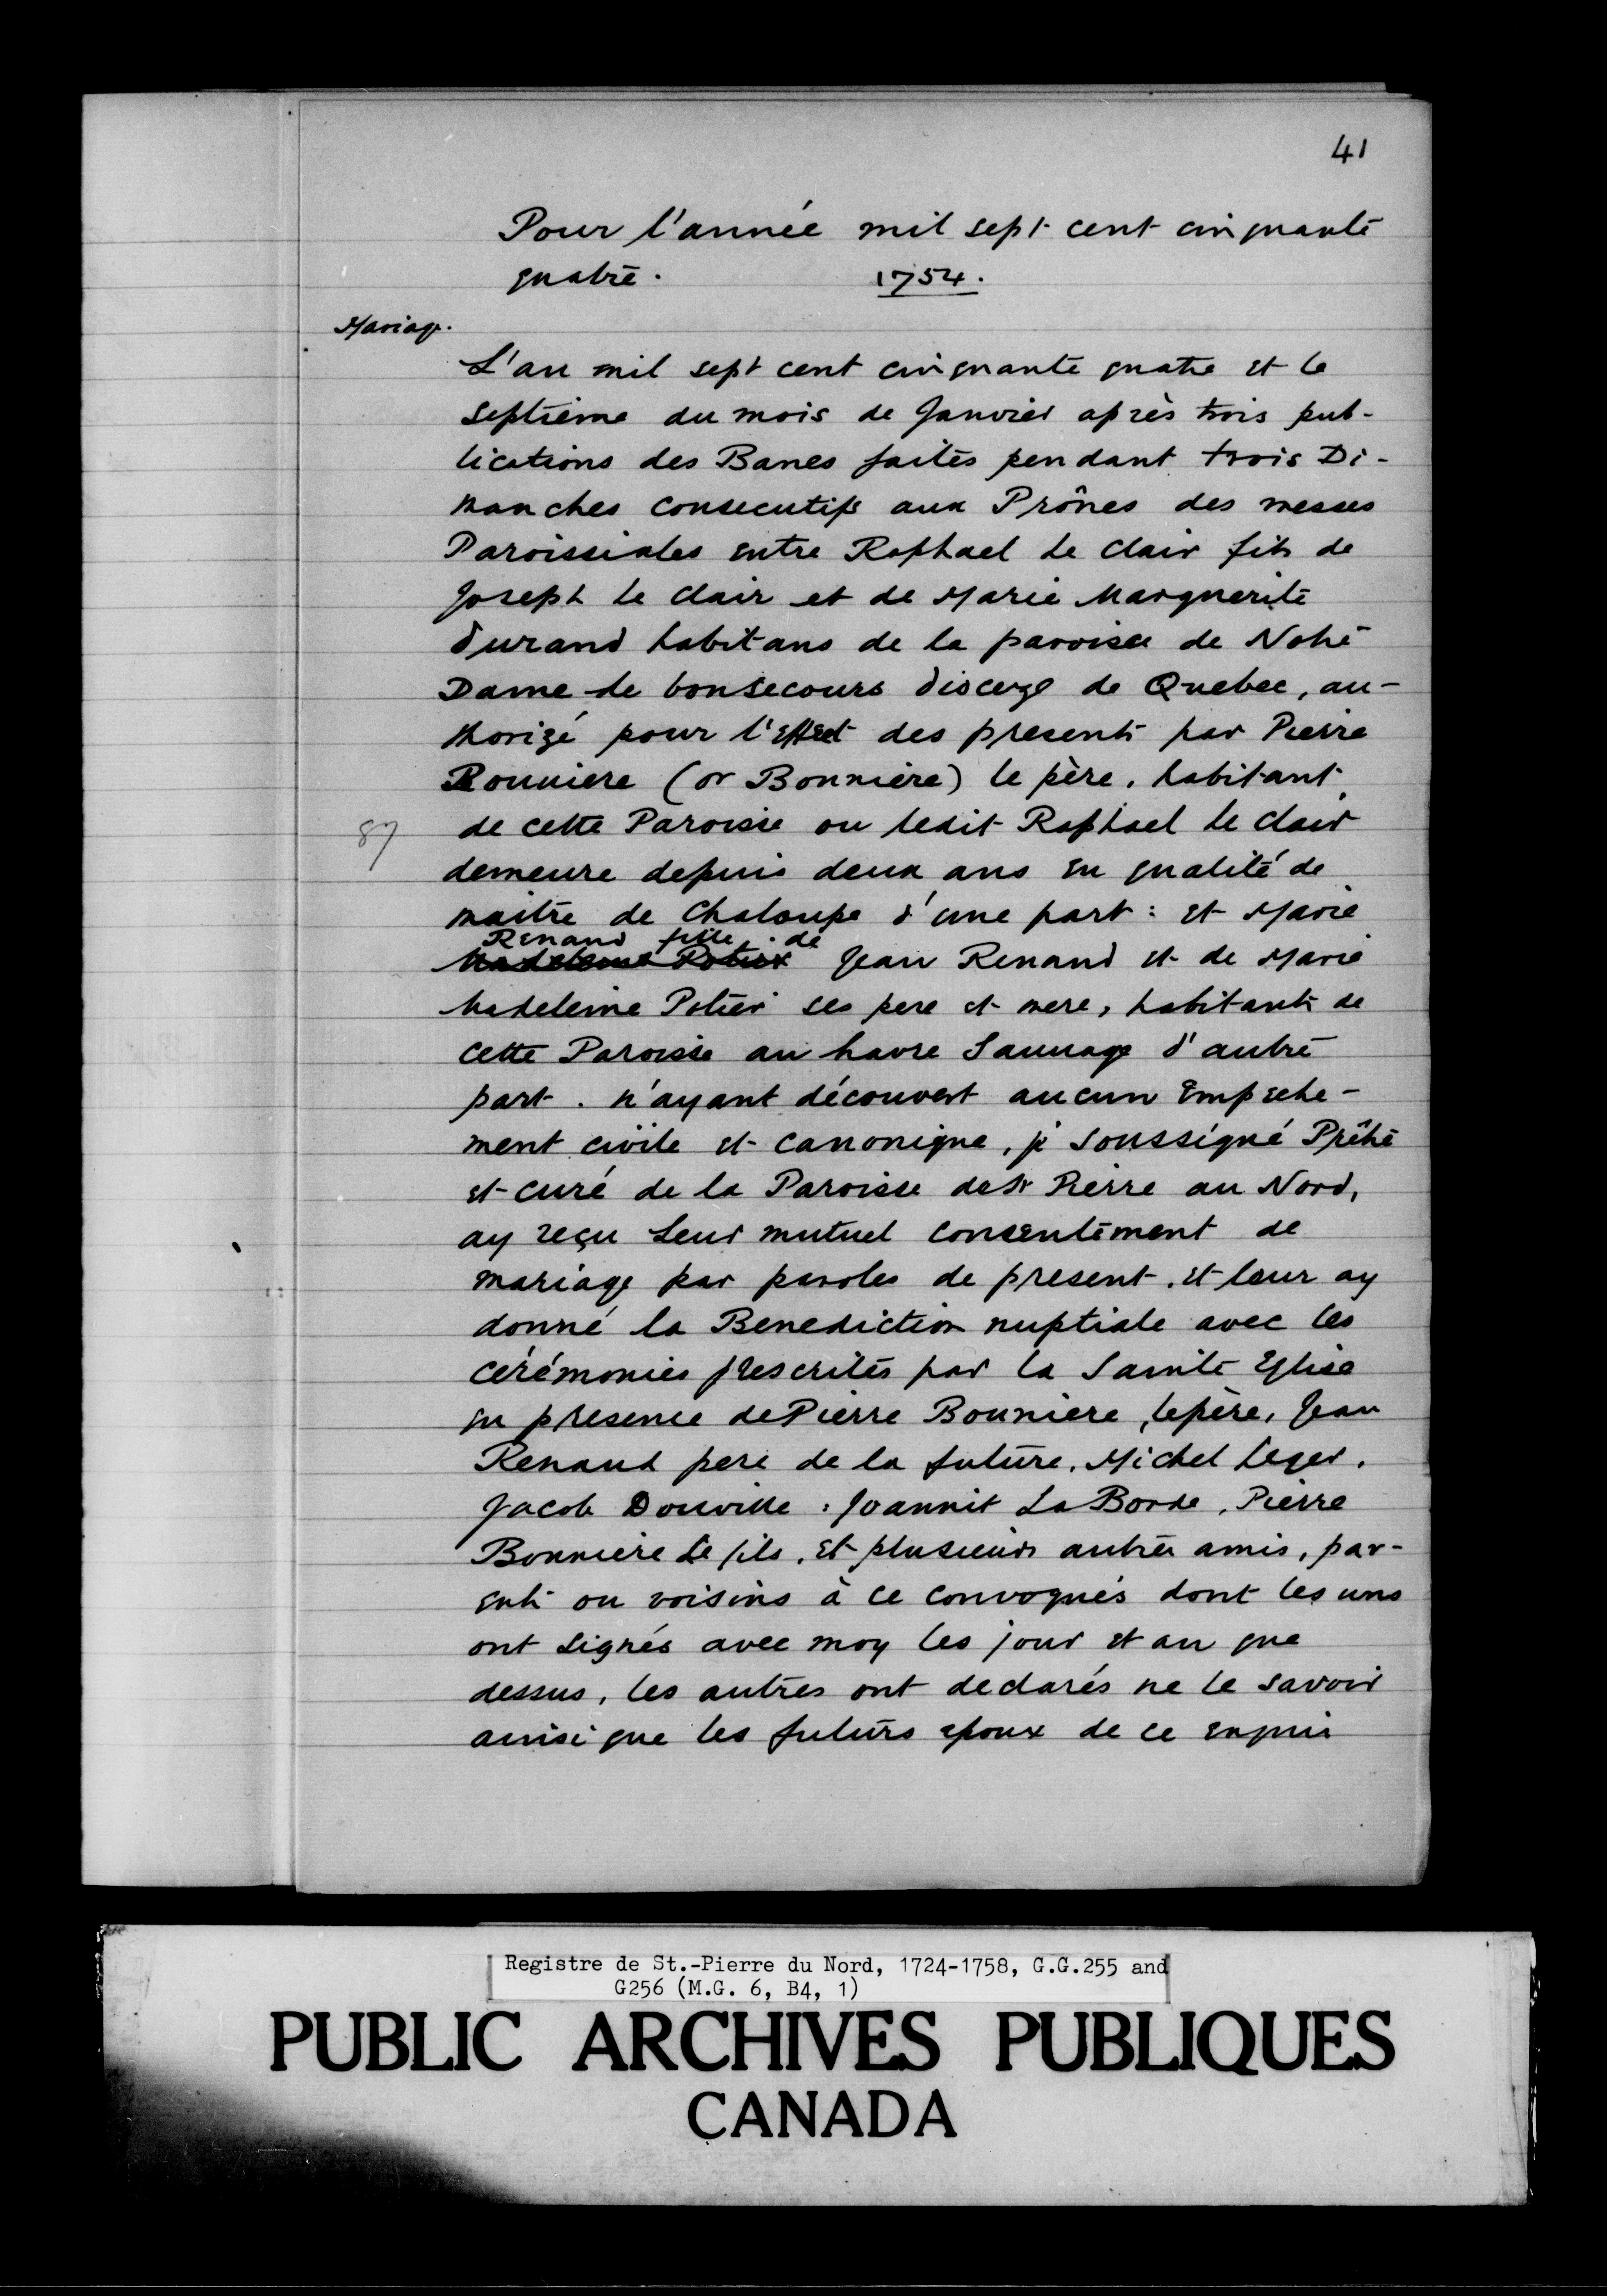 41
Pour l'année mil sept cent cinquante
quatre. 1754.
Mariage.
L'an mil sept cent cinquante quatre et le
septième du mois de Janvier après trois pub-
lications des Banes faites pendant trois Di-
manches consecutifs aux Prônes des messes
Paroissiales entre Raphael le clair fils de
Joseph le clair et de Marie Marguerite
durand habitans de la paroisse de Notre
Dame de bonsecours diocege de Quebec, au-
thorizé pour l'effect des presents par Pierre
Bouniere (or Bonnière) le père, habitant
87
de cette Paroisse ou ledit Raphael le clair
demeure depuis deux ans en qualité de
maitre de Chaloupe d'une part: et Marie
Renaud fille de
Madeleine Potier Jean Renaud et de Marie
Madeleine Potier ses pere et mere, habitants de
cette Paroisse au havre Sauvage d'autre
part. n'ayant découvert aucun Empeche-
ment civile et canonique, je soussigné Prêtre
et curé de la Paroisse de St Pierre au Nord,
ay reçu leur mutuel consentement de
mariage par paroles de present. et leur ay
donné la Benediction nuptiale avec les
cérémonies prescrites par la Sainte Eglise
en presence de Pierre Bouniere, le père, Jean
Renaud pere de la future, Michel Leger,
Jacob Douville, Joannit La Borde, Pierre
Bonniere Le fils, et plusieurs autres amis, par-
ents ou voisins à ce convoqués dont les uns
ont signés avec moy les jour et an que
dessus, les autres ont declarés ne le savoir
ainsi que les futurs epoux de ce enquis
Registre de St.-Pierre du Nord, 1724-1758, G.G.255 and
G256 (M.G. 6, B4, 1)
PUBLIC ARCHIVES PUBLIQUES
CANADA